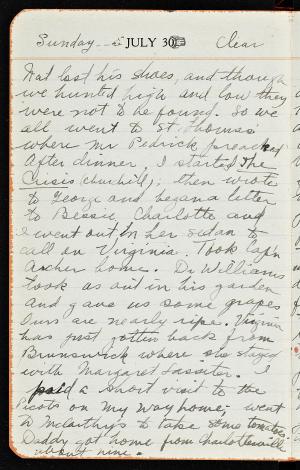 Sunday JULY 30 Clear
Nat lost his shoes, and though
we hunted high and low they
were not to be found. So we
all went to St. Thomas'
where Mr Pedrick preached
After dinner, I started The
Crisis (Churchill); then wrote
to George and began a letter
to Bessie. Charlotte and
I went out in her sedan to
call on Virginia. Took Capn
Archer home. Dr Williams
took us out in his garden
and gave us some grapes
Ours are nearly ripe. Virginia
has just gotten back from
Brunswick where she stayed
with Margaret Lassiter. I
paid a short visit to the
Picots on my way home; went
to McCarthys to take some tomatoes.
Daddy got home from Charlottesville
about nine.